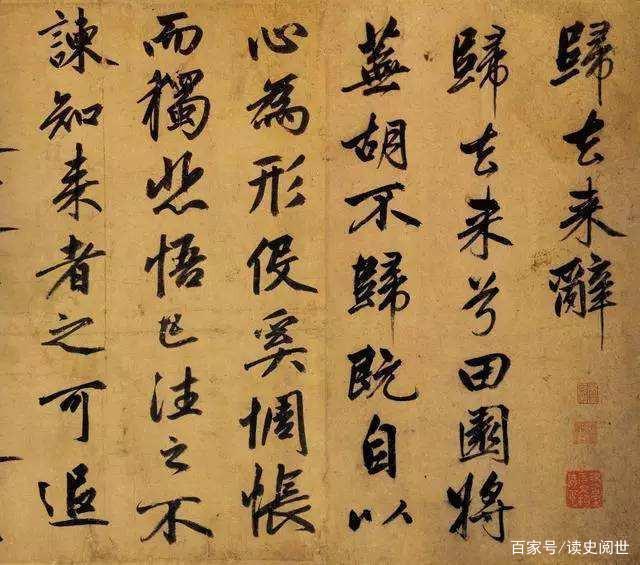 歸去来辭
歸去来兮田園將
蕪胡不歸既自以
心為形役奚惆悵
而獨悲悟已往之不
諫知来者之可追
百家号/读史阅世